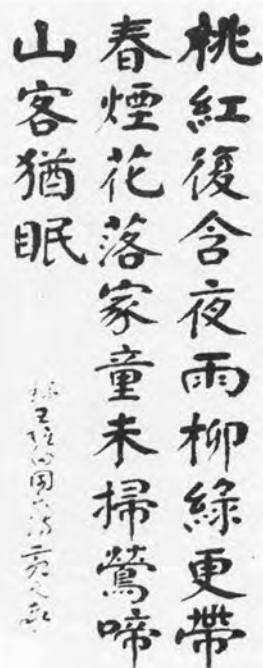 桃紅復含夜雨柳綠更帶
春煙花落家童未掃鶯啼
山客猶眠